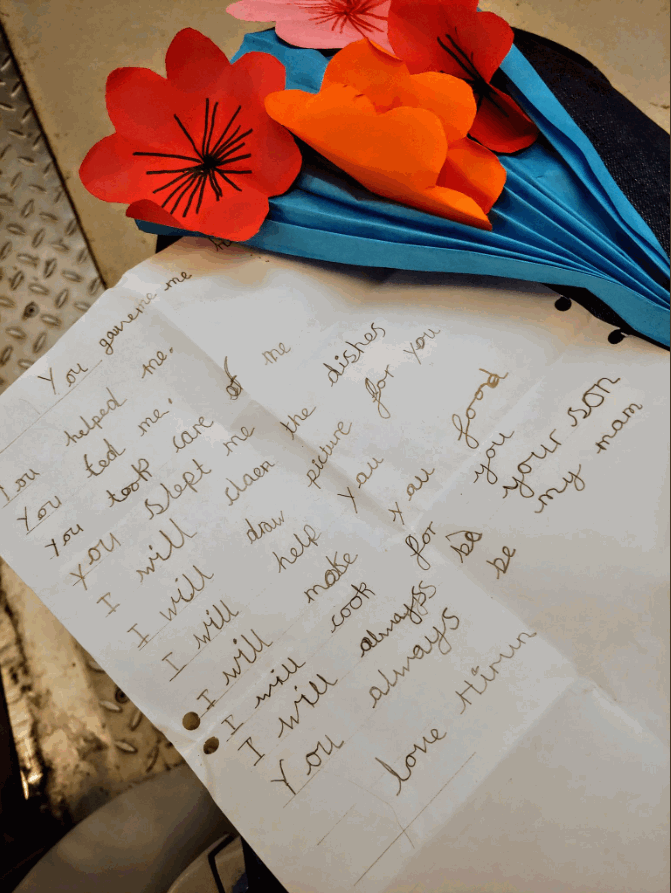 You gaveme me
You helped me.
You fed me.
You took care of me
You Slept me
I will claen the dishes
I will draw picture for you
I will help you
I will make you food
I will cook for you
I will alwayss be your son
You always be my mam
love